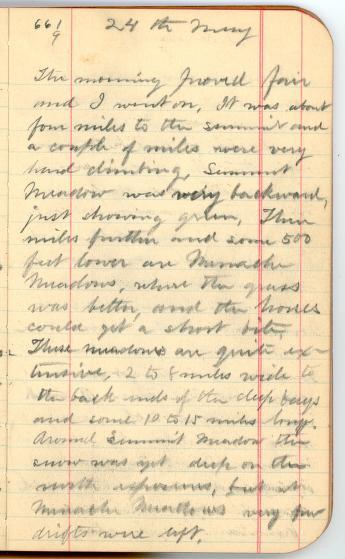 66 1/9 24 th May
The morning proved fair
and I went on. It was about
four miles to the summit and
a couple of miles were very
hard climbing. Summit
Meadow was very backward,
just showing green. Three
miles further and some 500
feet lower are Monache
Meadows, where the grass
was better, and the horses
could get a short bite.
These meadows are quite ex-
tensive, 2 to 8 miles wide to
the back ends of the deep bays
and some 10 to 15 miles long.
Around Summit Meadow the
snow was yet deep on the
north exposures, but at
Monache Meadows very few
drifts were left.